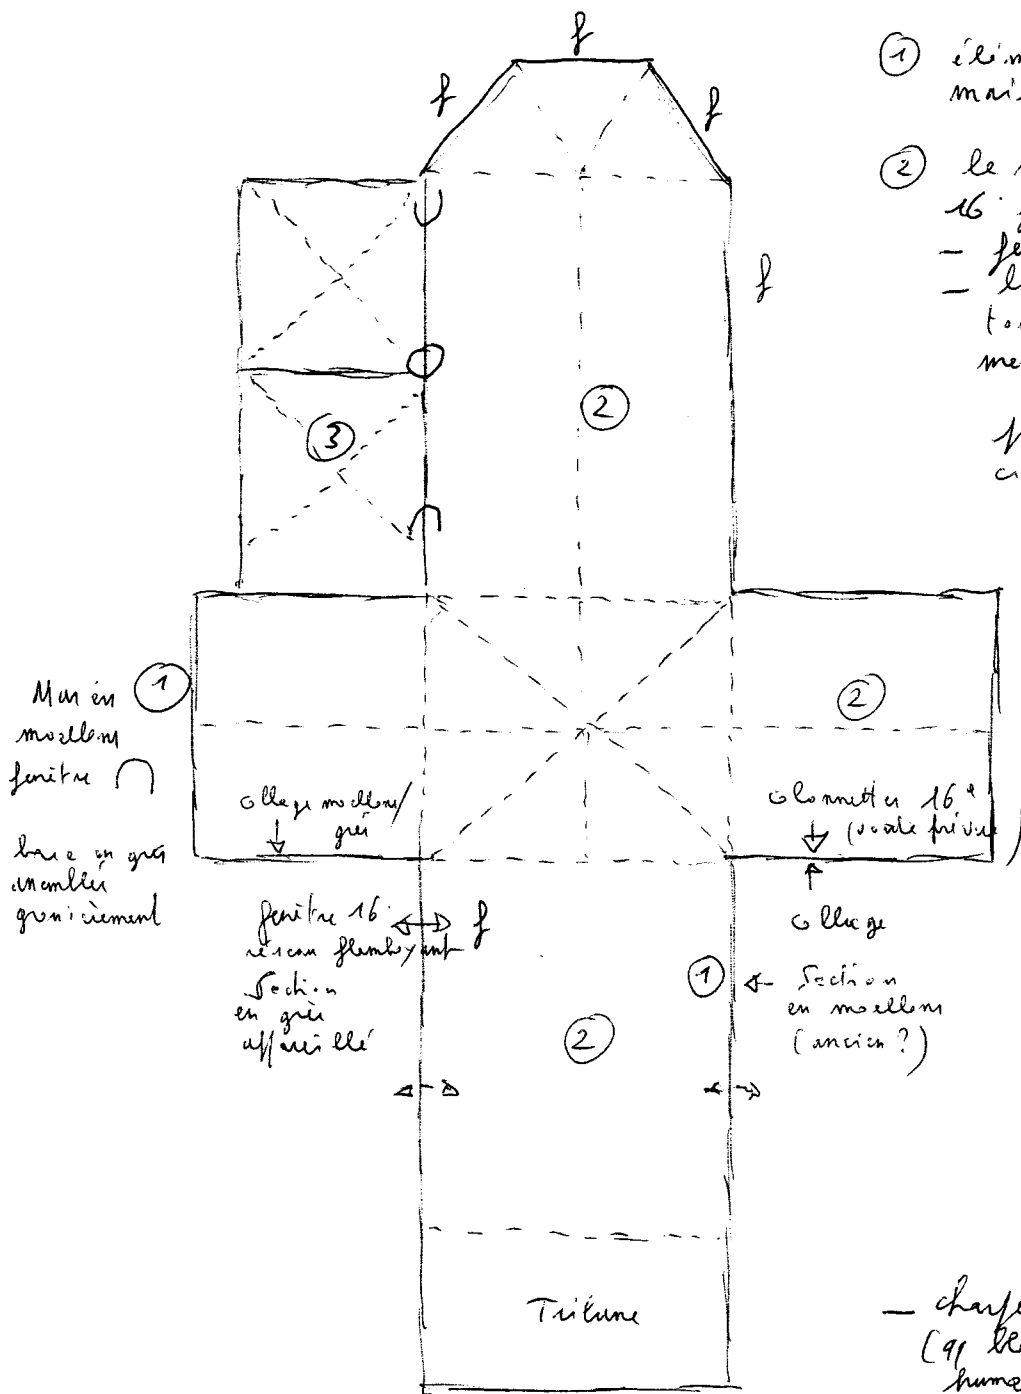 f
f
f
f
① élém
mais
② le
16
— fe
— l
to
me
②
③
①
Mur en
moellons
fenêtre
base en grès
assemblés
grossièrement
collage moellons/
grès
②
colonnettes 16e
(voûte prévue)
collage
fenêtre 16e
réseau flamboyant
f
Section
en grès
appareillé
①
Section
en moellons
(ancien ?)
②
Tribune
— charpe